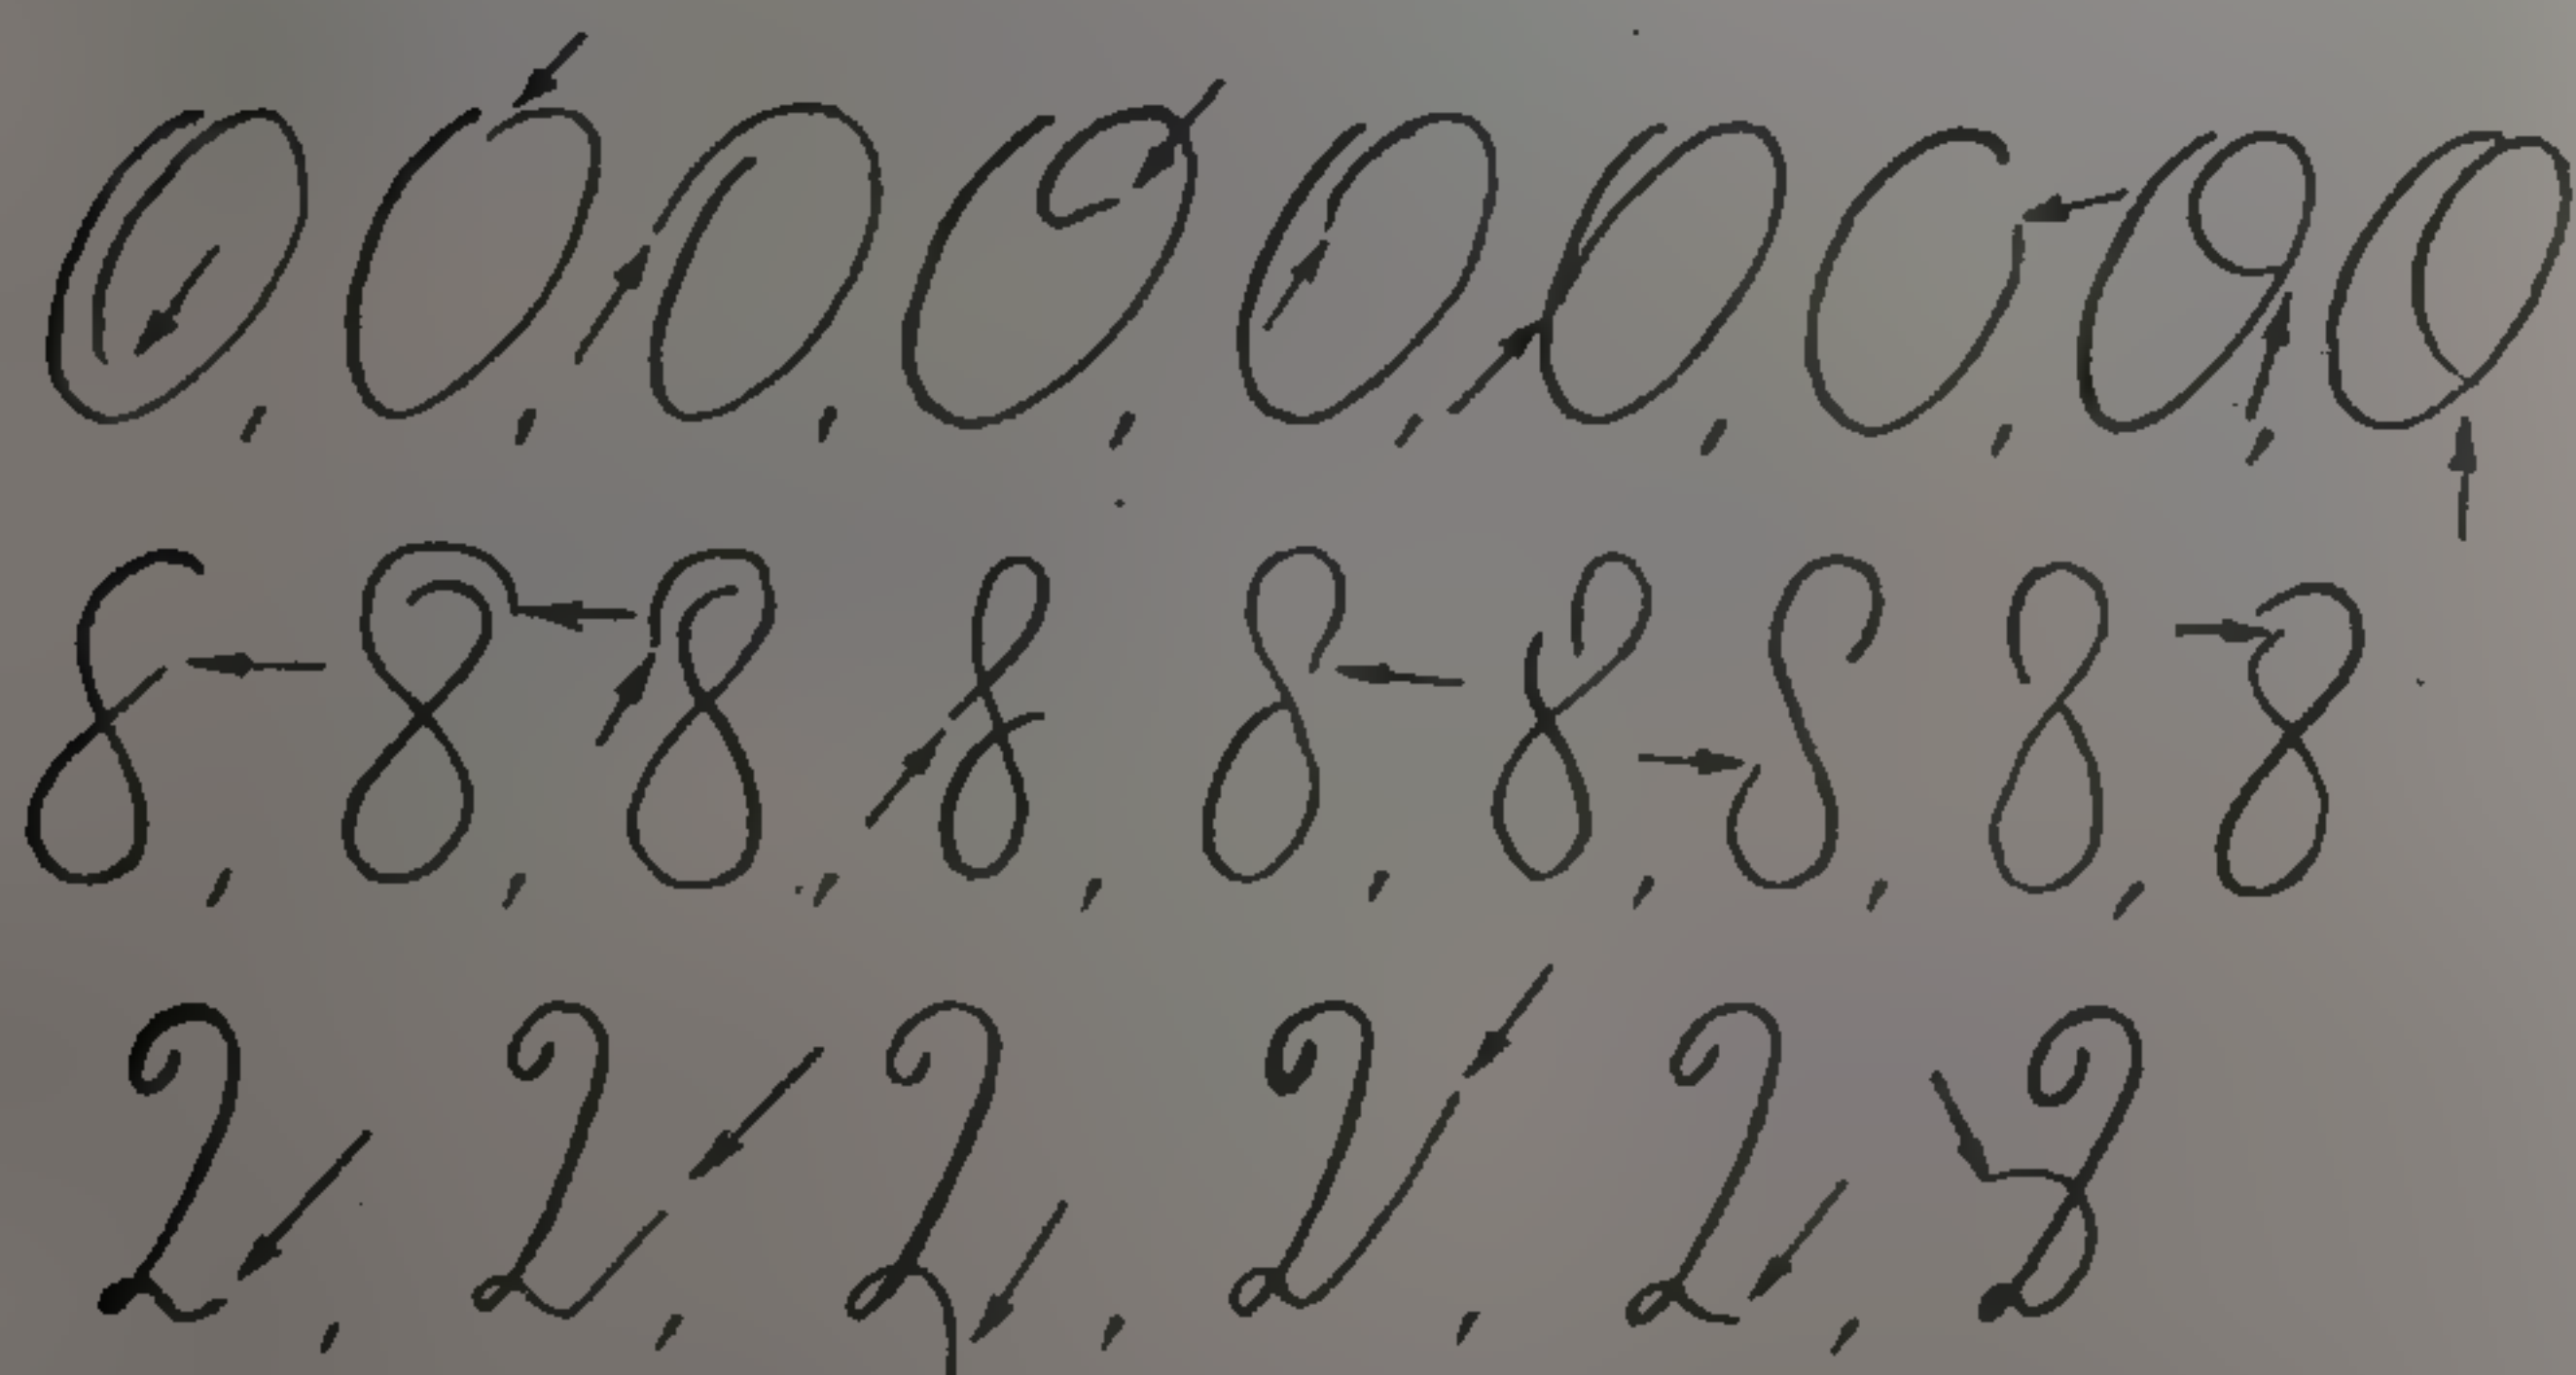 0, 0, 0, 0, 0, 0, 0, 0, 0
8, 8, 8, 8, 8, 8, 8, 8, 8
2, 2, 2, 2, 2, 2